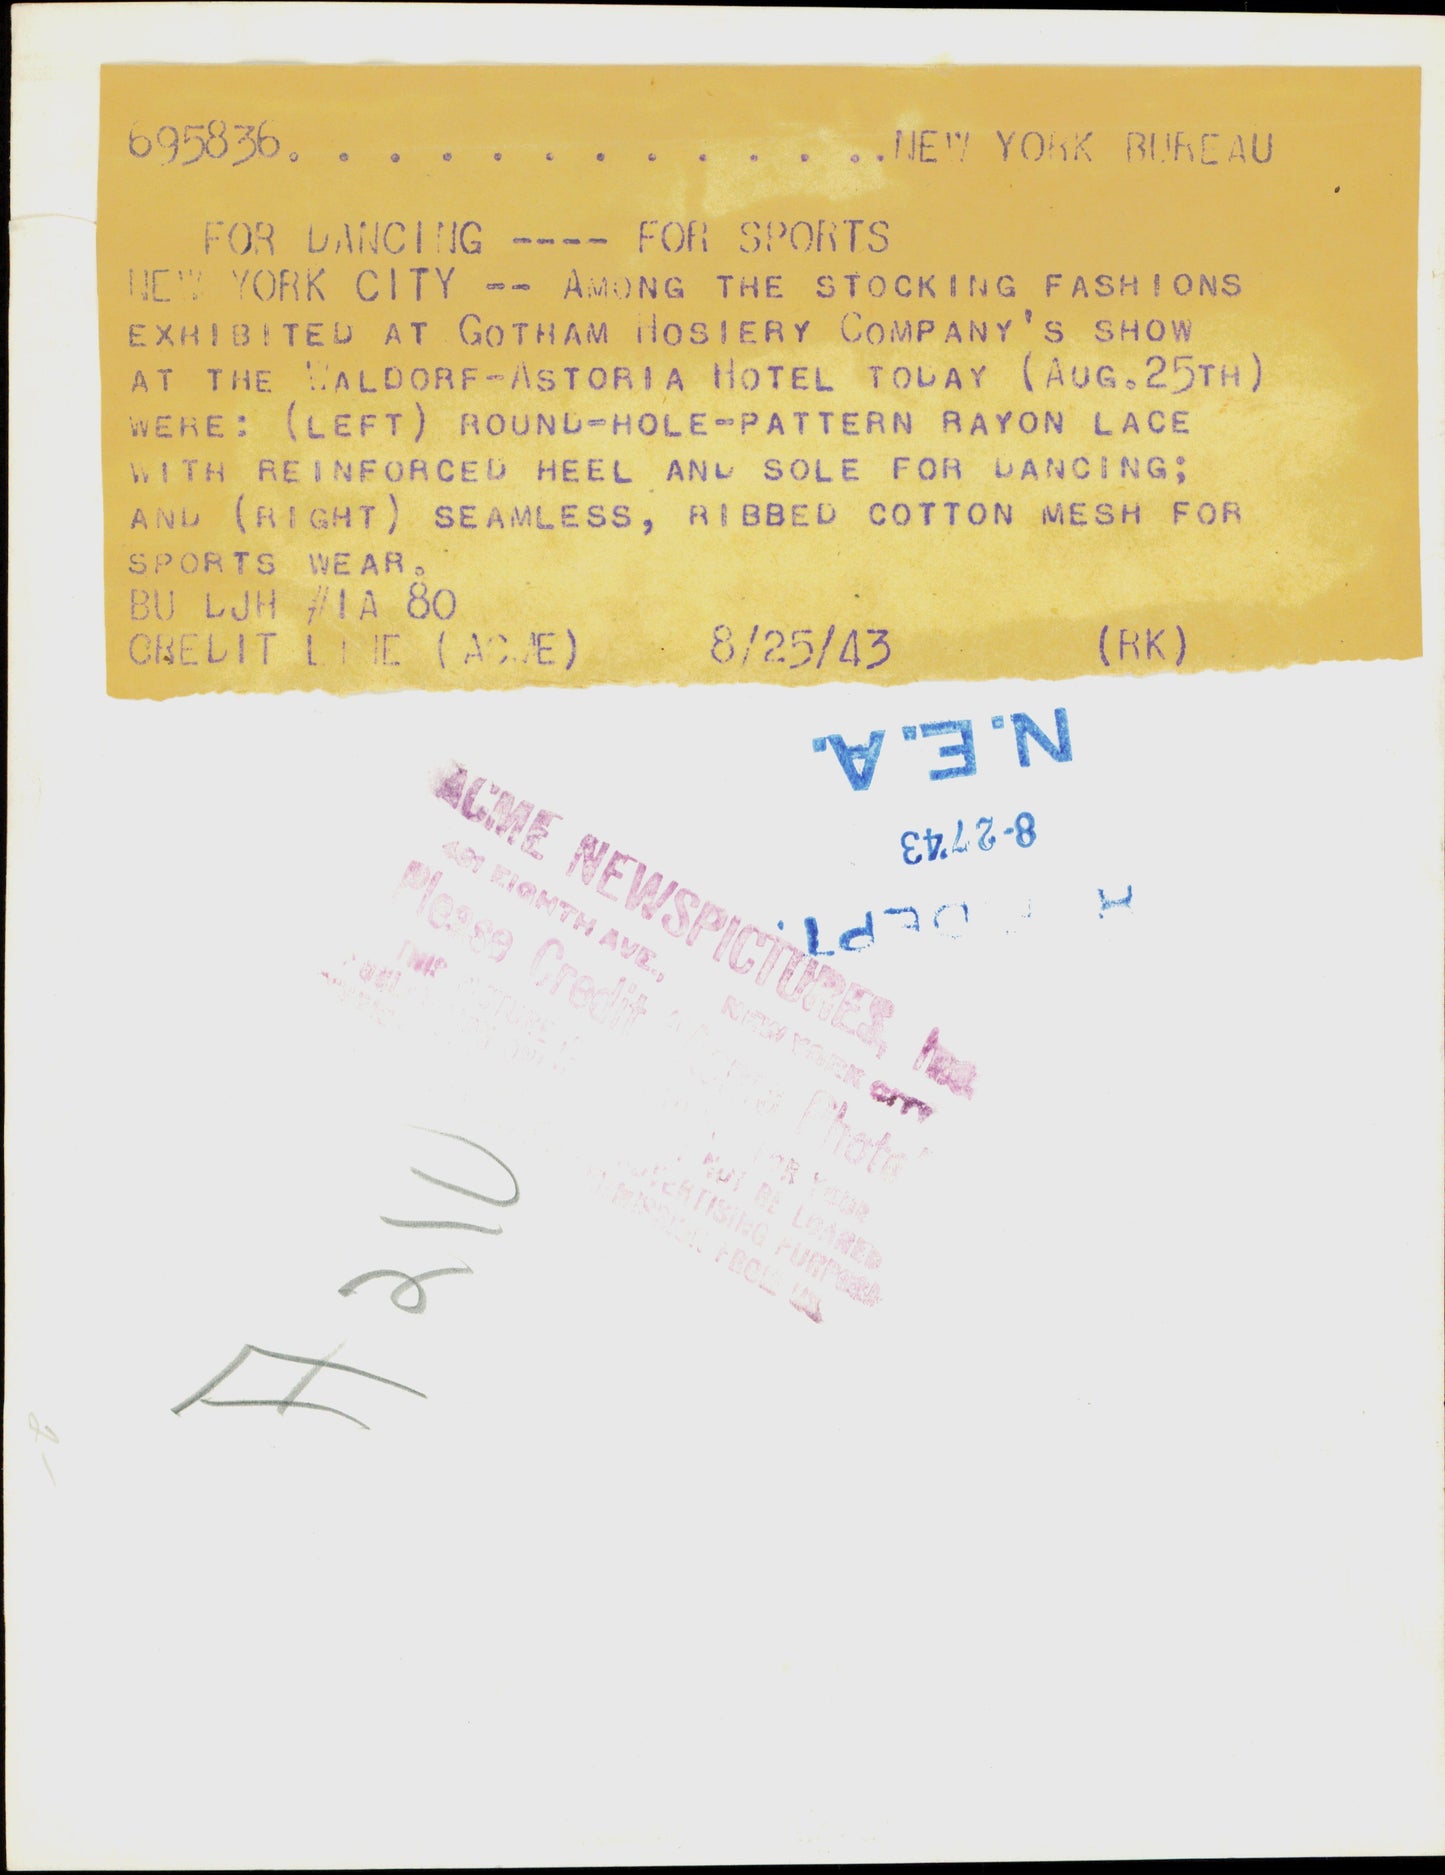 695836. . . . . . . . . . . . ..NEW YORK BUREAU
FOR DANCING ---- FOR SPORTS
NEW YORK CITY -- AMONG THE STOCKING FASHIONS
EXHIBITED AT GOTHAM HOSIERY COMPANY'S SHOW
AT THE WALDORF-ASTORIA HOTEL TODAY (AUG.25TH)
WERE: (LEFT) ROUND-HOLE-PATTERN RAYON LACE
WITH REINFORCED HEEL AND SOLE FOR DANCING;
AND (RIGHT) SEAMLESS, RIBBED COTTON MESH FOR
SPORTS WEAR.
BU DJH #1A 80
CREDIT LINE (ACME) 8/25/43 (RK)
N.E.A.
8-2743
DEPT.
ACME NEWSPICTURES, Inc.
461 EIGHTH AVE., NEW YORK CITY
Please Credit "Acme Photo"
THIS PICTURE
FOR YOUR
NOT BE LOANED
ADVERTISING PURPOSES
PERMISSION FROM US
A 210